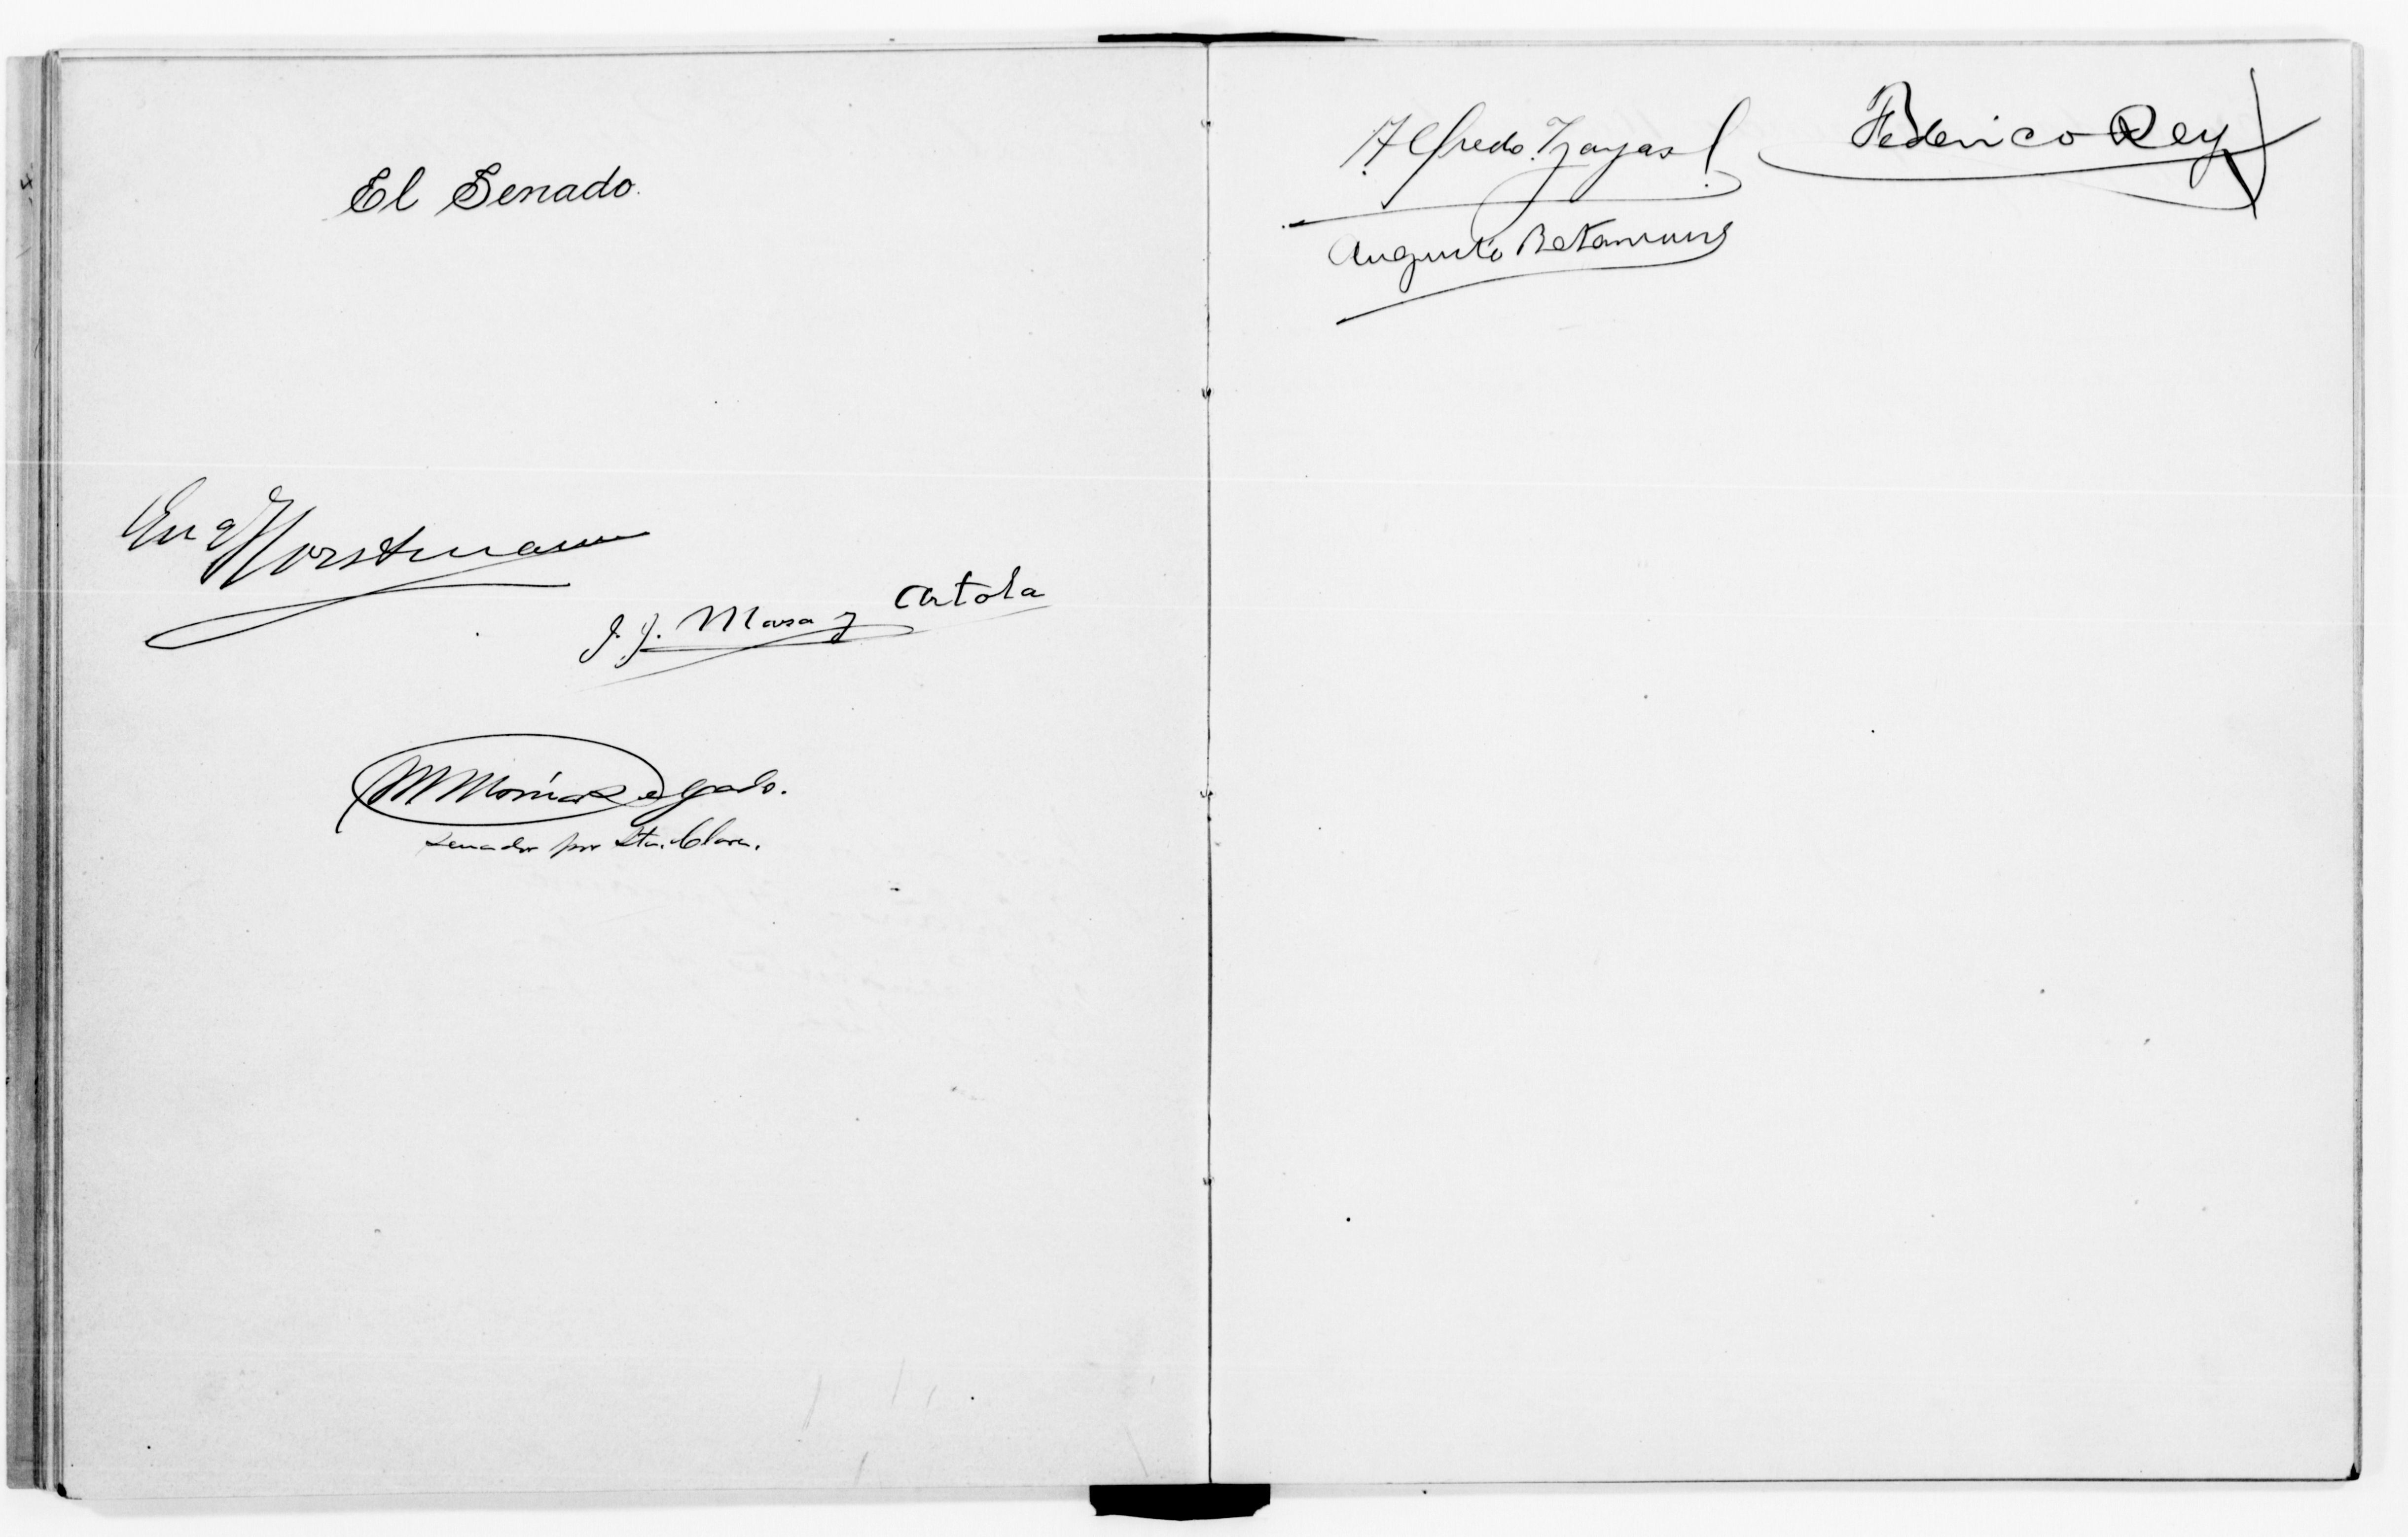 El Senado.
Eug Horstmann
J. J. Masa y Artola
M Morúa Delgado.
Senador por Sta. Clara.
Alfredo Zayas
Federico Rey
Augusto Betancourt